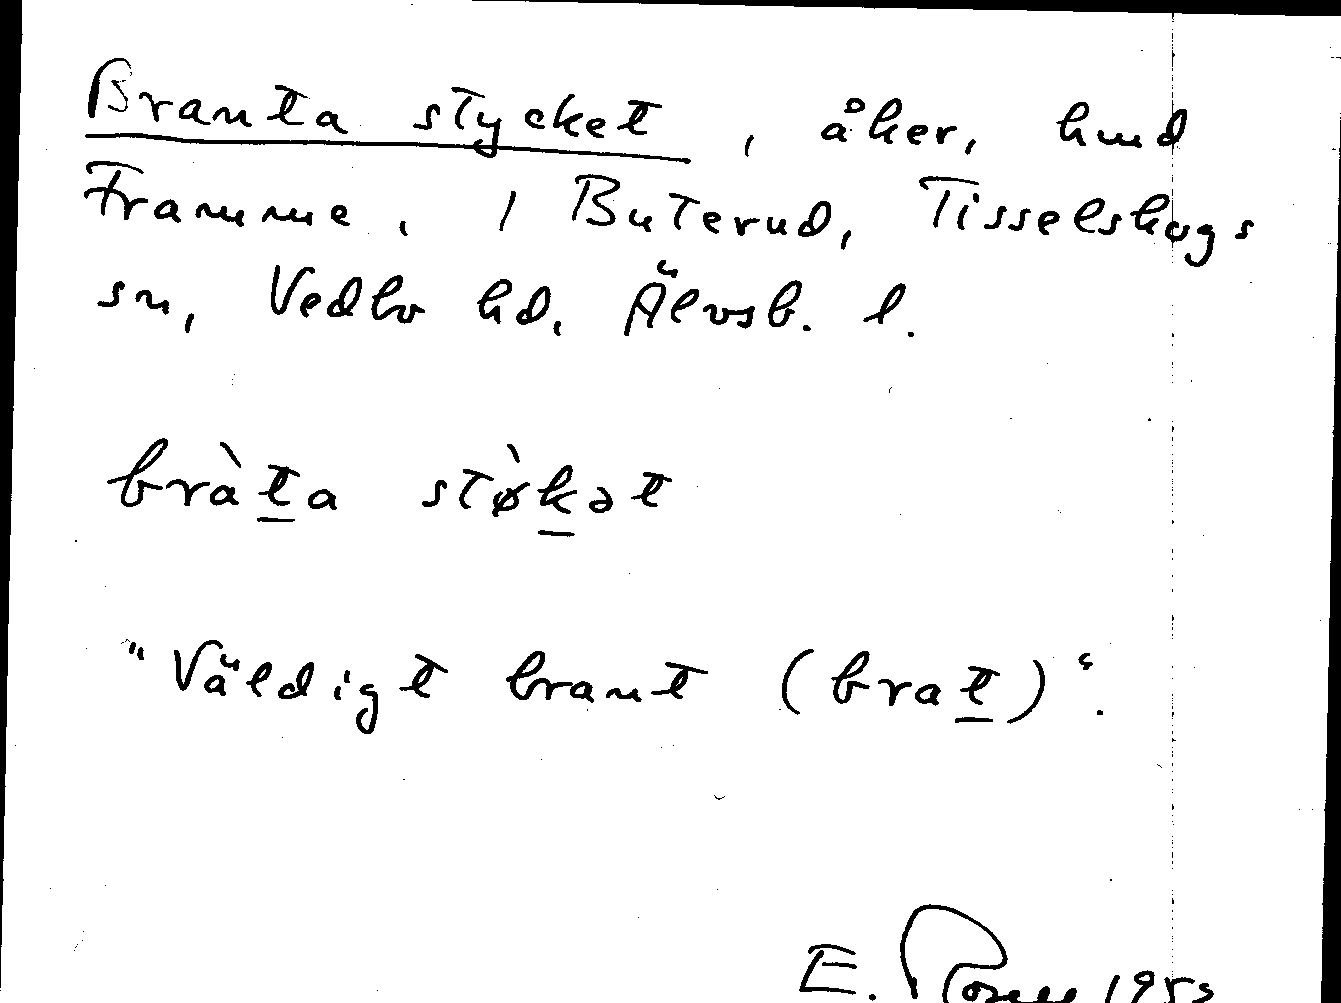 Branta stycket, åker, hmd
Framme, i Buterud, Tisselskogs
sn, Vedbo hd, Älvsb. l.
bràt̲a stø̀k̲ət
"Väldigt brant (brat̲)".
E.